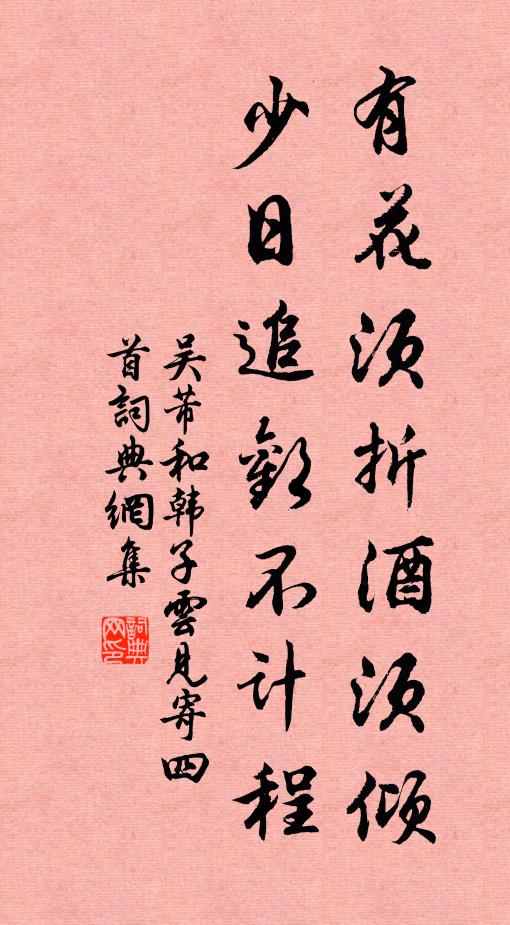 有花须折酒须倾
少日追歡不计程
吴芾和韩子雲見寄四
首詞典網集
詞典
网印